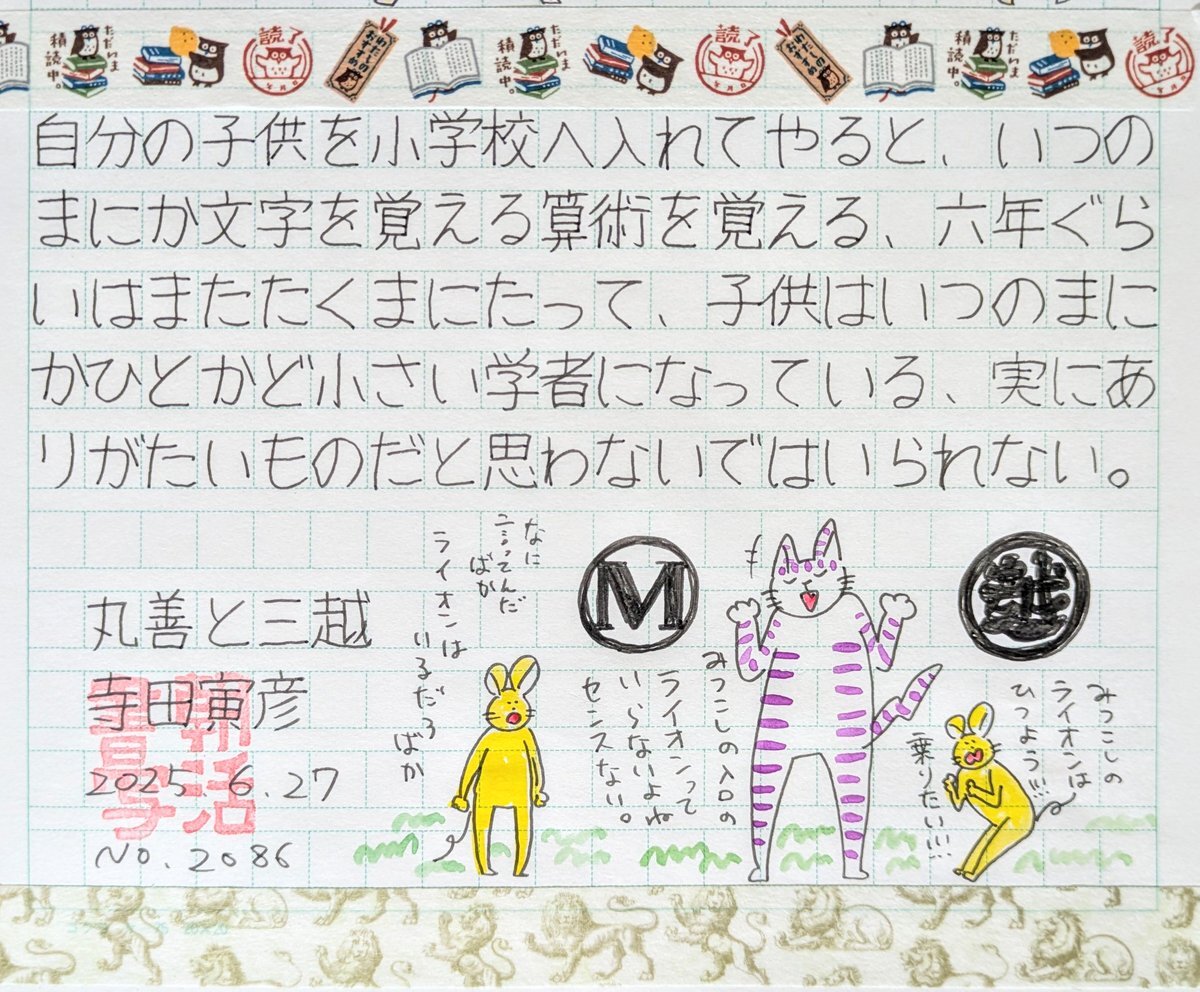 ただいま
積読中。
読了
年月日
わたしの
おすすめ
ただいま
積読中。
読了
年月日
わたしの
おすすめ
ただいま
積読中。
読了
年月日
自分の子供を小学校へ入れてやると、いつの
まにか文字を覚える算術を覚える、六年ぐら
いはまたたくまにたって、子供はいつのまに
かひとかど小さい学者になっている、実にあ
りがたいものだと思わないではいられない。
丸善と三越
寺田寅彦
2025.6.27
No.2086
なに
言ってんだ
ばか
ライオンは
いるだろ
ばか
M
みつこしの入口の
ライオンって
いらないよね
センスない。
越
みつこしの
ライオンは
ひつよう!!!
乗りたい!!!